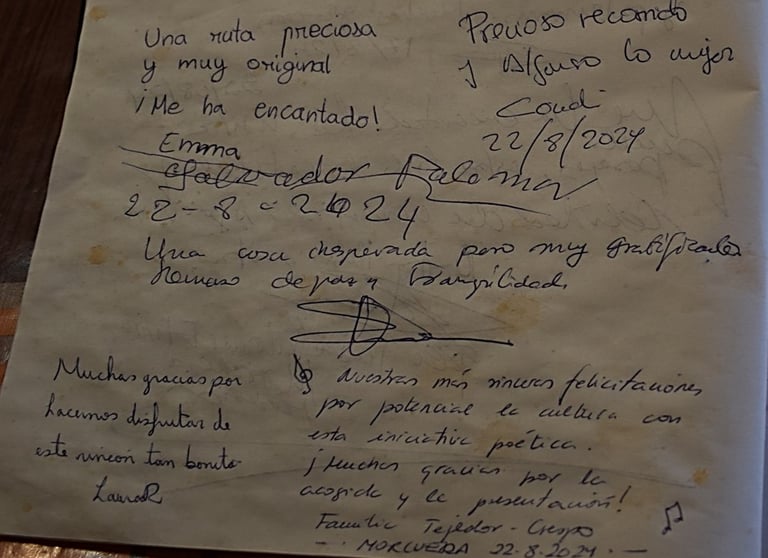 Una ruta preciosa
y muy original
¡Me ha encantado!
Emma
Precioso recorrido
y Alfonso lo mejor
Coudi
22/8/2024
Salvador Paloma
22-8-2024
Una cosa inesperada pero muy gratificante
Remanso de paz y Tranquilidad.
Muchas gracias por
hacernos disfrutar de
este rincón tan bonito
LauraR
Nuestras más sinceras felicitaciones
por potenciar la cultura con
esta iniciativa poética.
¡Muchas gracias por la
acogida y la presentación!
Familia Tejedor-Crespo
-· MORCUERA 22-8-2024 ·-